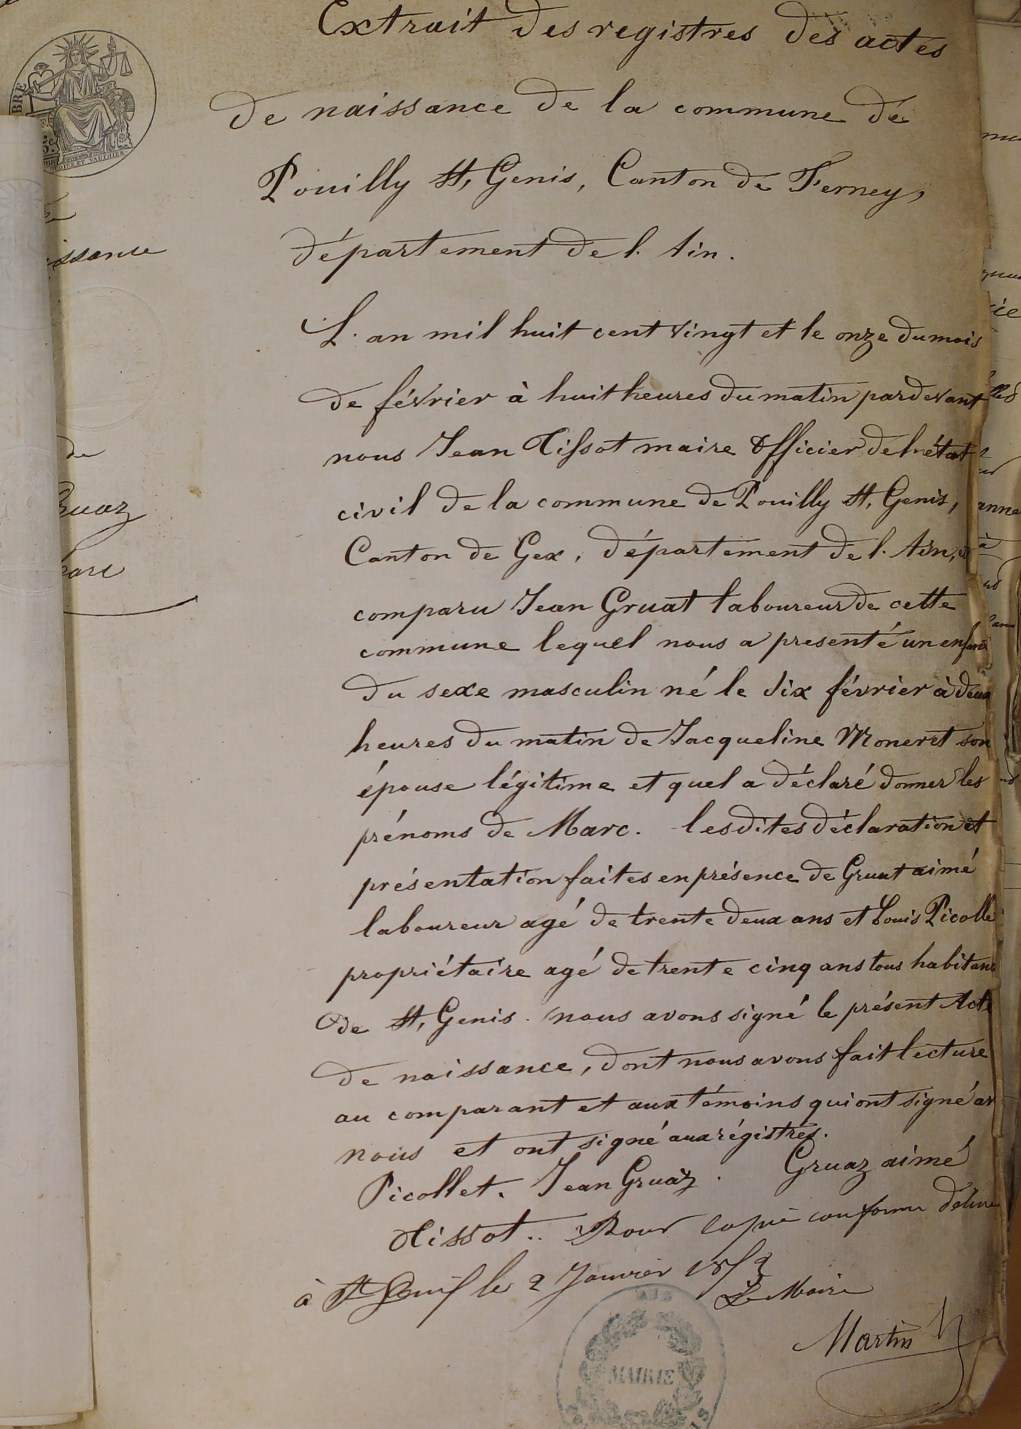 Extrait des registres des actes
de naissance de la commune de
Pouilly St, Genis, Canton de Ferney,
département de l. Ain.
L. an mil huit cent vingt et le onze du mois
de février à huit heures du matin pardevant
nous Jean Tissot maire Officier de l'état
civil de la commune de Pouilly St, Genis,
Canton de Gex, département de l. Ain,
comparu Jean Gruat laboureur de cette
commune lequel nous a presenté un enfant
du sexe masculin né le dix février à deux
heures du matin de Jacqueline Moneret son
épouse légitime et quel a déclaré donner les
prénoms de Marc. lesdites déclaration et
présentation faites en présence de Gruat aimé
laboureur agé de trente deux ans et Louis Picollet
propriétaire agé de trente cinq ans tous habitans
de St, Genis. nous avons signé le présent Acte
de naissance, dont nous avons fait lecture
au comparant et aux témoins qui ont signé av
nous et ont signé aux régistres.
Picollet. Jean Gruaz. Gruaz aimé
Tissot.. Pour copie conforme délivré
à St Genis le 2 Janvier
Le Maire
Martin
MAIRIE
issance
de
Gruaz
Marc